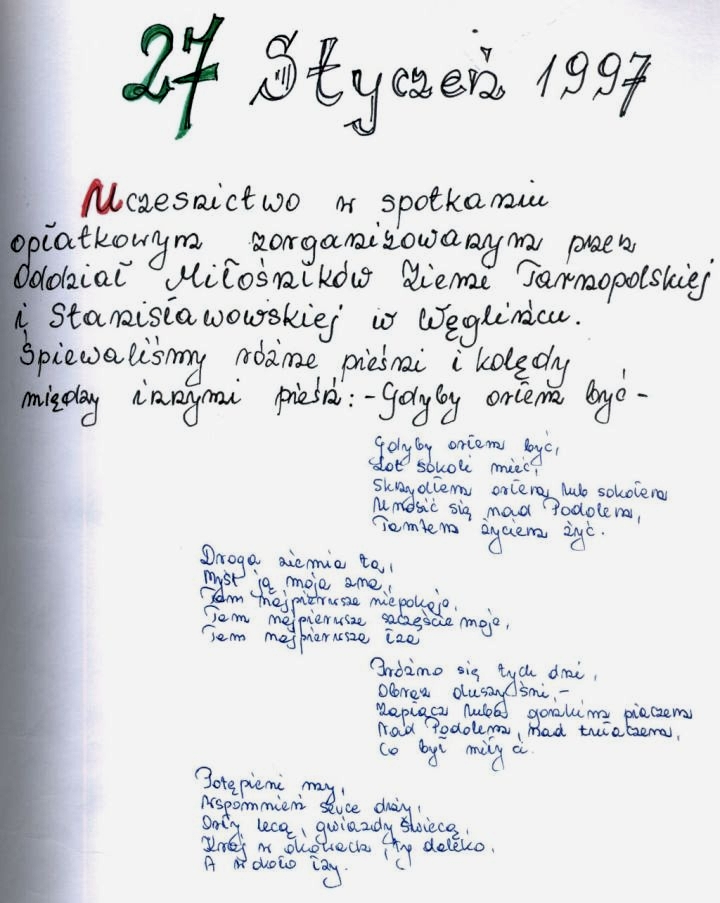 27 Styczeń 1997
Uczesnictwo w spotkaniu
opłatkowym zorganizowanym przez
Oddział Miłośników Ziemi Tarnopolskiej
i Stanisławowskiej w Węglińcu.
Śpiewaliśmy różne pieśni i kolędy
między innymi pieśń: - Gdyby orłem być -
Gdyby orłem być,
Lot sokoli mieć,
Skrzydłem orłem lub sokołem
Unosić się nad Podolem,
Tamtem życiem żyć.
Droga ziemia ta,
Myśl ją moja zna,
Tam najpierwsze niepokoje,
Tam najpierwsze szczęście moje,
Tam najpierwsza łza
Próżno się tych dni,
Obraz duszy śni,-
Zapłacz luba gorzkim płaczem
Nad Podolem, nad tułaczem,
Co był miły ci.
Potępieni my,
Wspomnień serce drży,
Orły lecą, gwiazdy świecą,
Kraj w okowach, ty daleko,
A wokoło łzy.